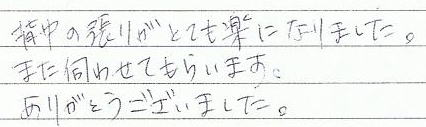 背中の張りがとても楽になりました。
また伺わせてもらいます。
ありがとうございました。